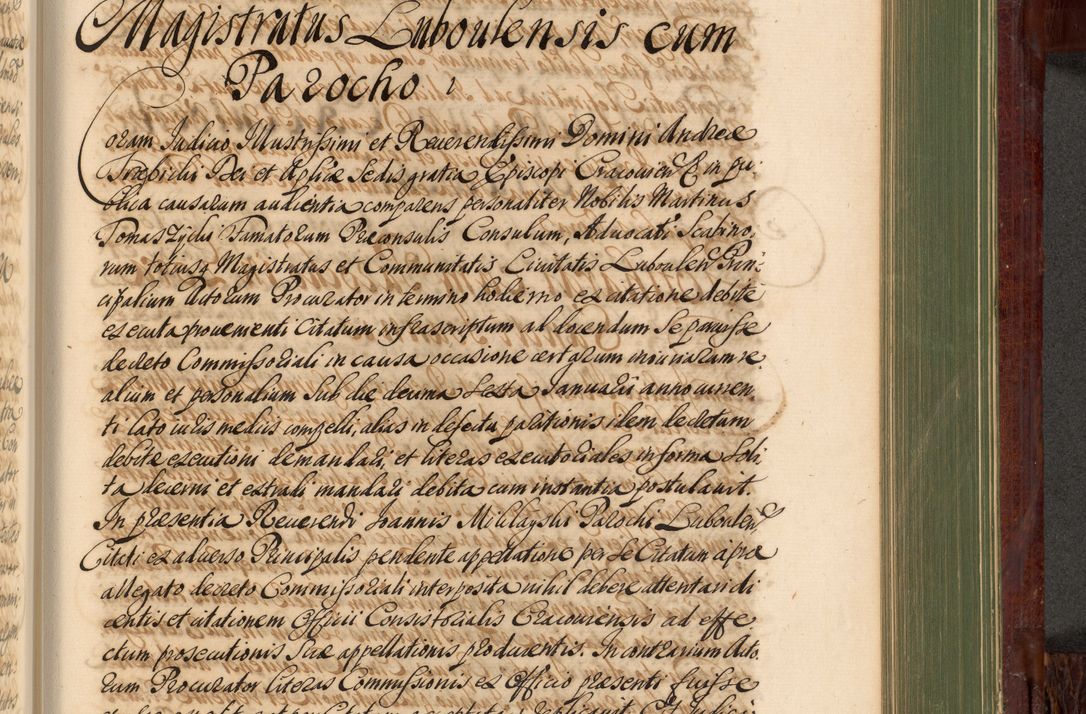 Magistratus Laboulensis cum
Parocho
Coram Judicio Illustrissimi et Reuerendissimi Domini Andreæ
Trzebicki Dei et Aplicæ Sedis gratia Episcopi Cracouien &c in pu-
blica causarum audientia comparens personaliter Nobilis Martinus
Tomaszycki Famatorum Præconsulis Consulum, Aduocati Scabino-
rum totiusq Magistratus et Communitatis Ciuitatis Laboulen Prin-
cipalium Actorum Procurator in termino hodierno ex citatione debite
executa prouenienti Citatum infrascriptum ad docendum Se paruisse
decreto Commissoriali in causa occasione certarum iniuriarum re-
alium et personalium Sub die decima Sexta Januarii anno curren-
ti lato iuris mediis compelli, alias in defectu paritionis idem decretum
debitæ executioni demandari, et literas executoriales in forma Soli-
ta decerni et extradi mandari debita cum instantia postulauit.
In præsentia Reuerendi Joannis Mikłayski Parochi Laboulen
Citati ex aduerso Principalis pendente appellatione per Se Citatum a præ
allegato decreto Commissoriali interposita nihil debere attentari di
centis et citationem Officii Consistorialis Cracouiensis ad effe
ctum prosecutionis Suæ appellationis producentis. In contrarium Acto-
rum Procurator literas Commissionis ex Officio præsenti fuisse